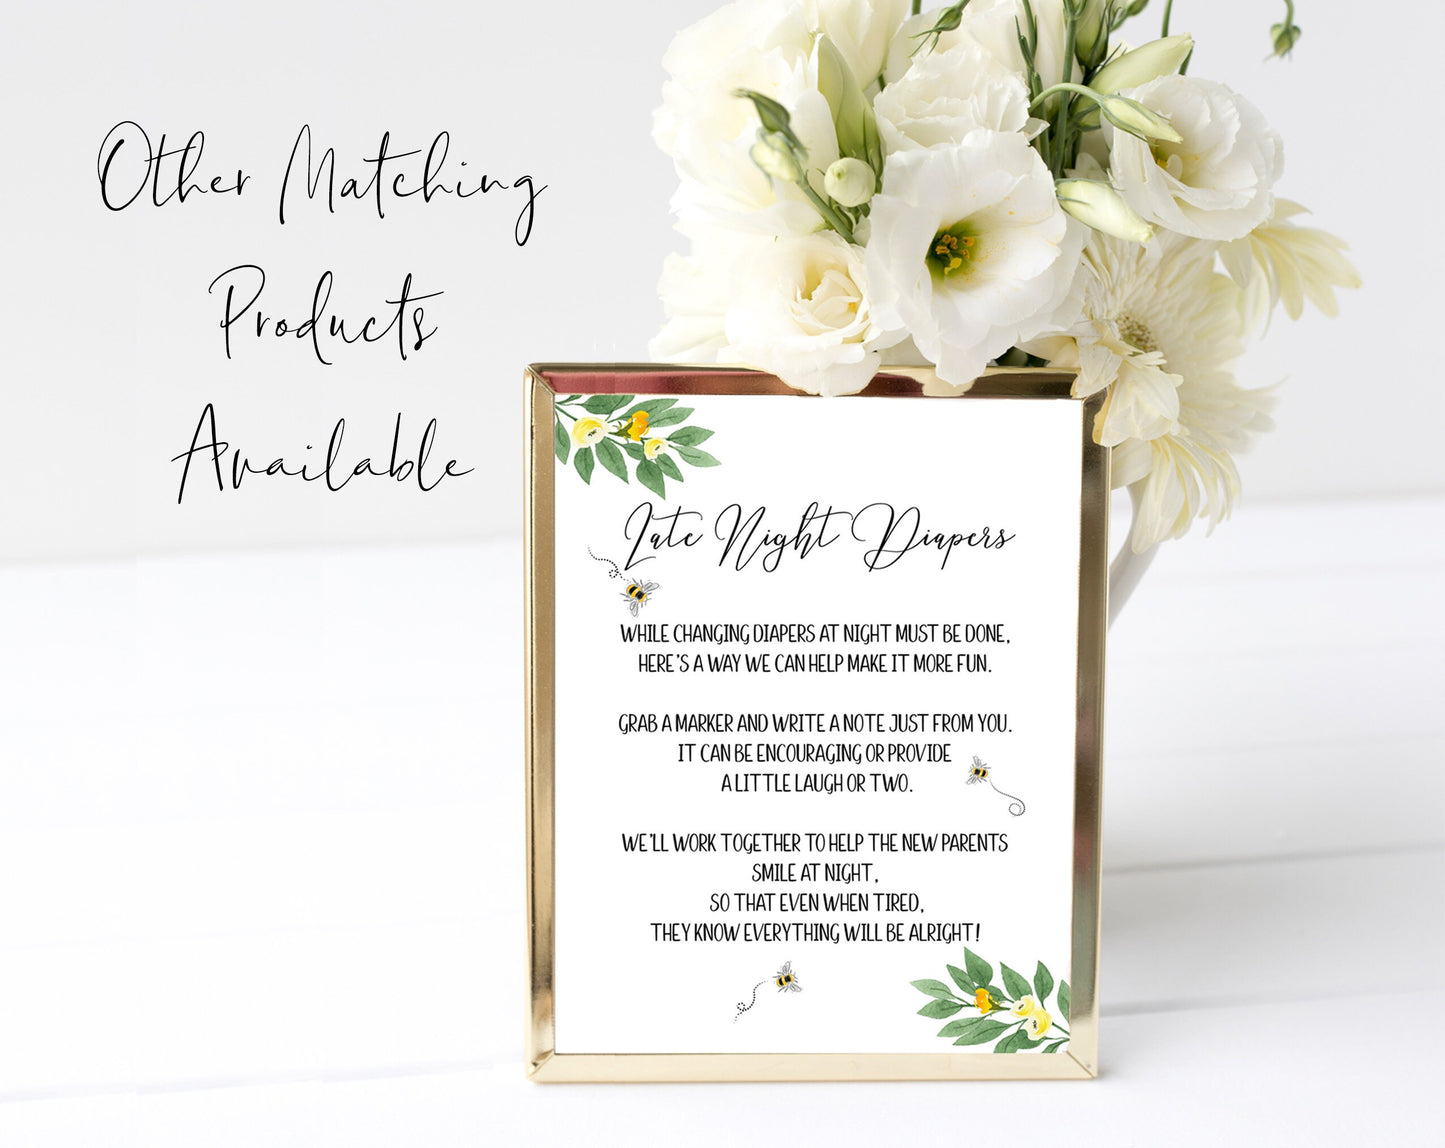 Other Matching
Products
Available
Late Night Diapers
WHILE CHANGING DIAPERS AT NIGHT MUST BE DONE,
HERE'S A WAY WE CAN HELP MAKE IT MORE FUN.
GRAB A MARKER AND WRITE A NOTE JUST FROM YOU.
IT CAN BE ENCOURAGING OR PROVIDE
A LITTLE LAUGH OR TWO.
WE'LL WORK TOGETHER TO HELP THE NEW PARENTS
SMILE AT NIGHT,
SO THAT EVEN WHEN TIRED,
THEY KNOW EVERYTHING WILL BE ALRIGHT!